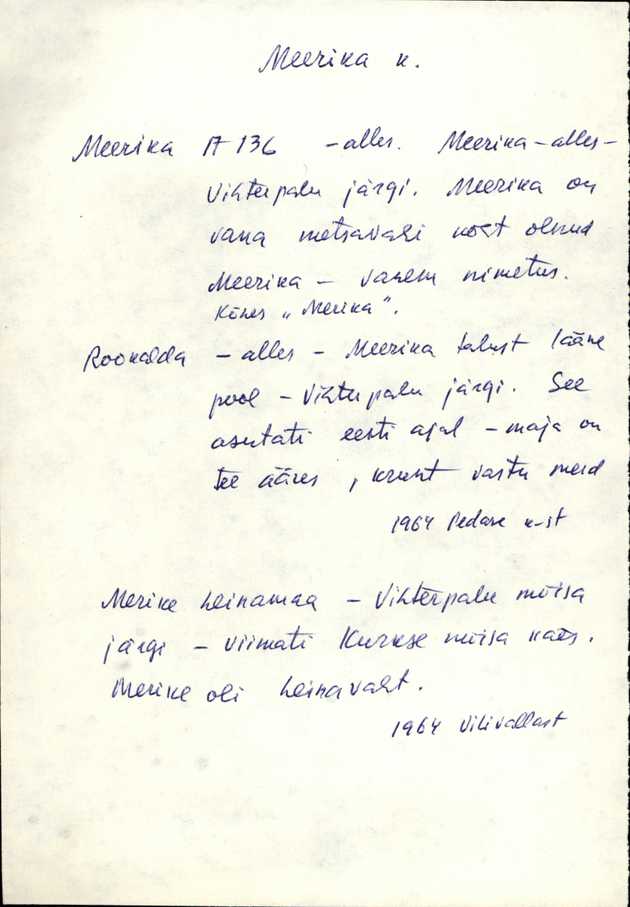 Meerika k.
Meerika A 136 - alles. Meerika - alles -
Vihterpalu järgi. Meerika on
vana metsavahi koht olnud
Meerika - vanem nimetus.
Kõnes „Merika".
Rookalda - alles - Meerika talust lääne
pool - Vihterpalu järgi. See
asutati eesti ajal - maja on
tee ääres, krunt vastu merd
1964 Pedase k-st
Merike heinamaa - Vihterpalu mõisa
järgi - viimati Kurkse mõisa käes.
Merike oli heinavaht.
1964 Vilivallast